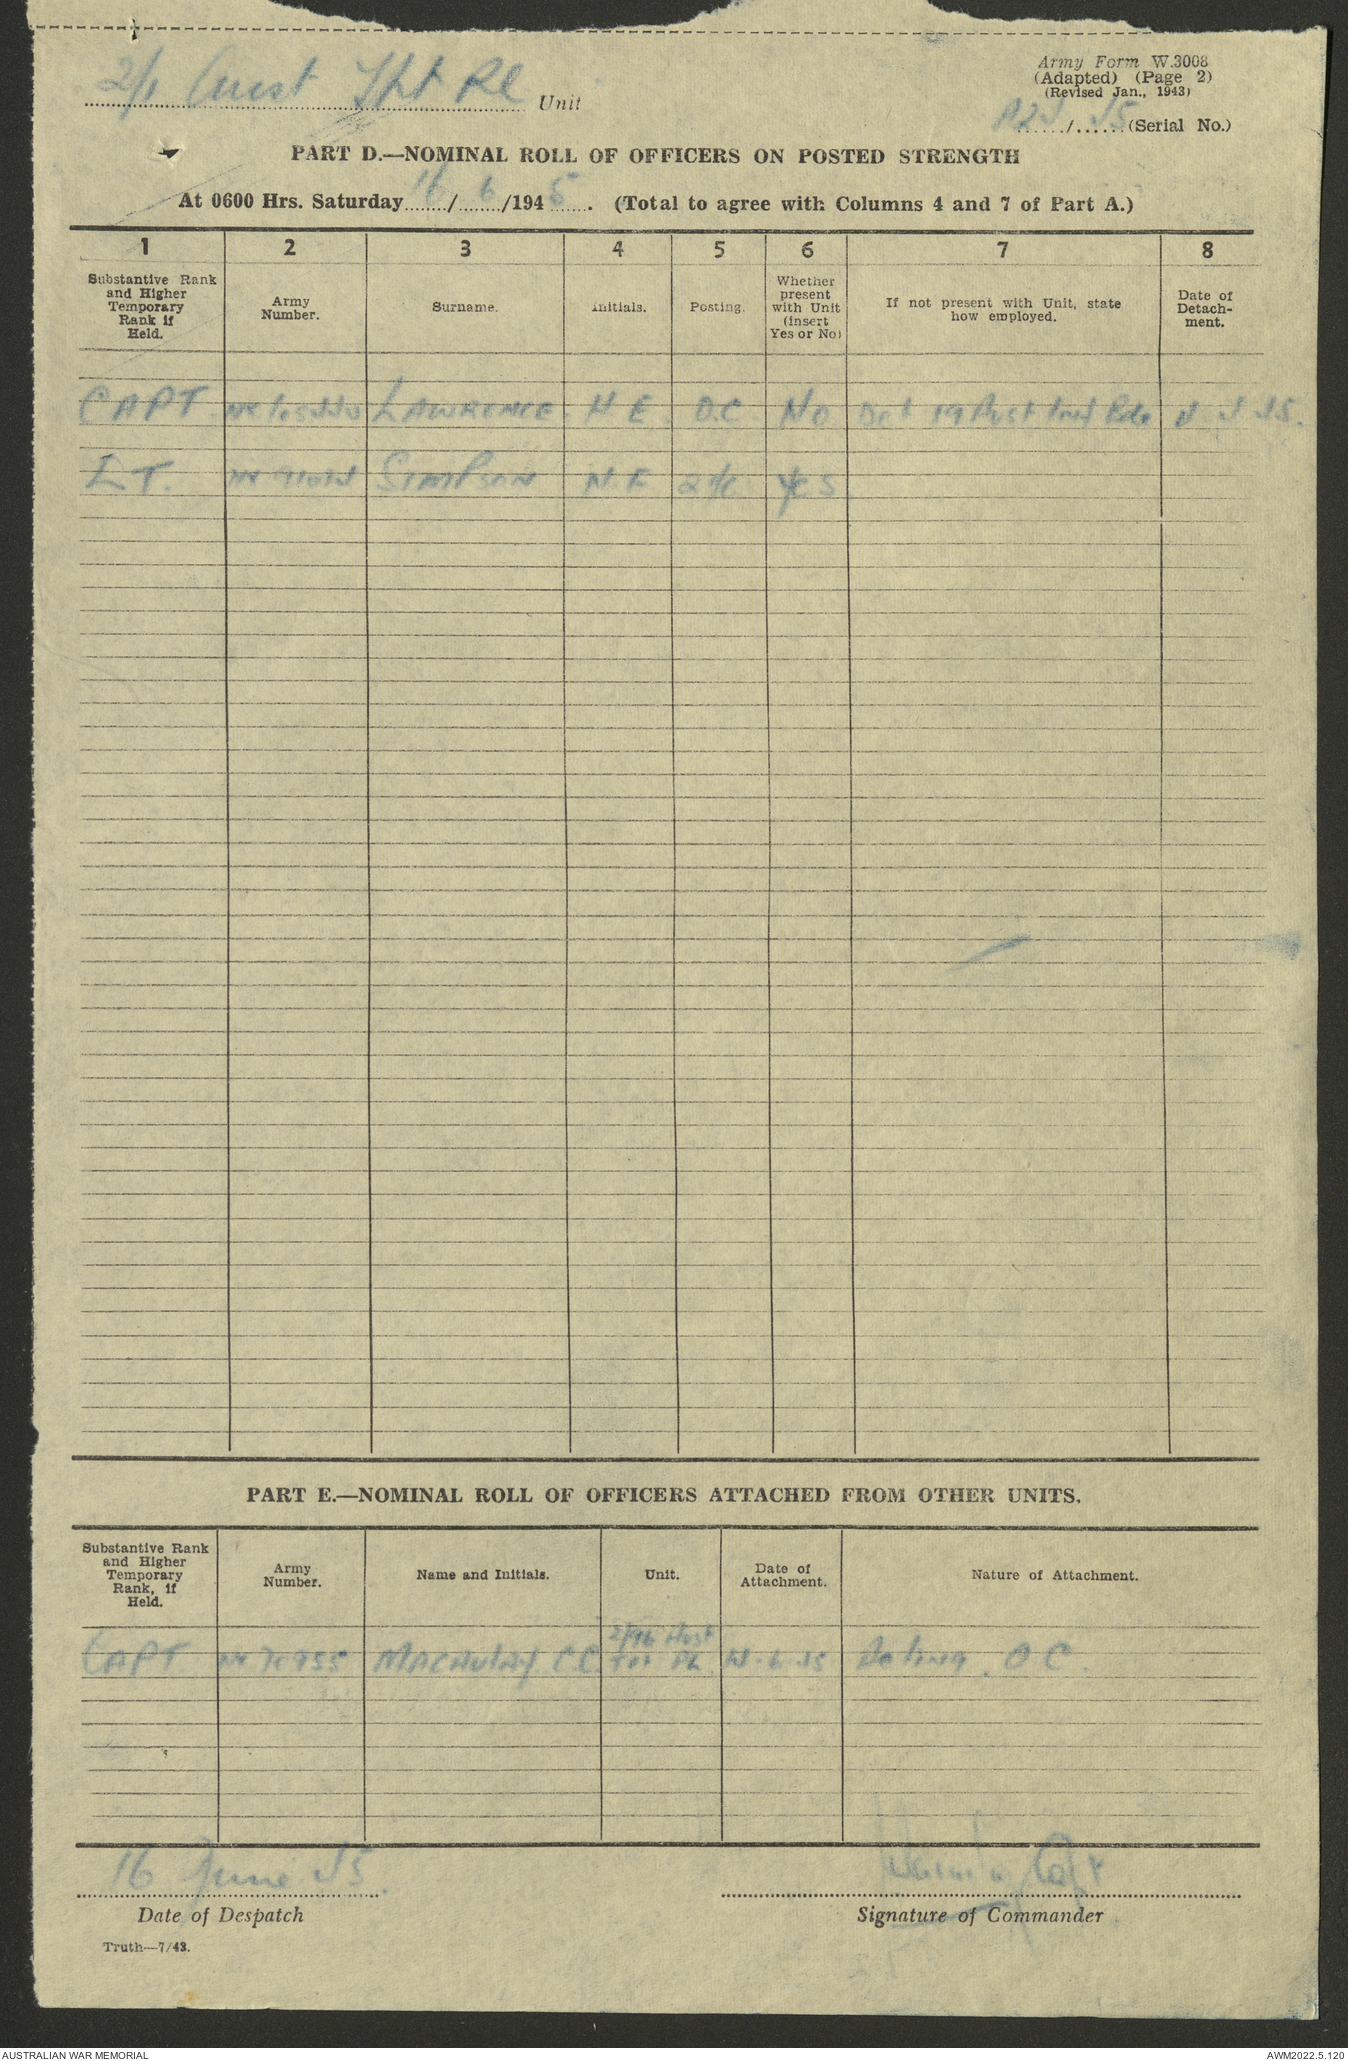 2/1 Aust Tpt Pl Unit
Army Form W.3008
(Adapted) (Page 2)
(Revised Jan., 1943)
....../......(Serial No.)
PART D.—NOMINAL ROLL OF OFFICERS ON POSTED STRENGTH
At 0600 Hrs. Saturday 16/6/1945. (Total to agree with Columns 4 and 7 of Part A.)
1 2 3 4 5 6 7 8
Substantive Rank and Higher Temporary Rank if Held.
Army Number.
Surname.
Initials.
Posting.
Whether present with Unit (insert Yes or No)
If not present with Unit, state how employed.
Date of Detachment.
CAPT. LAWRENCE. H E. O.C. NO Det 19 Aust
LT. SIMPSON N. E 2 i/c YES
PART E.—NOMINAL ROLL OF OFFICERS ATTACHED FROM OTHER UNITS.
Substantive Rank and Higher Temporary Rank, if Held.
Army Number.
Name and Initials.
Unit.
Date of Attachment.
Nature of Attachment.
CAPT MACAULAY C.C. Aust Tpt Pl Acting. O C.
16 June 45.
Capt
Date of Despatch
Signature of Commander
Truth—7/43.
AUSTRALIAN WAR MEMORIAL
AWM2022.5.120